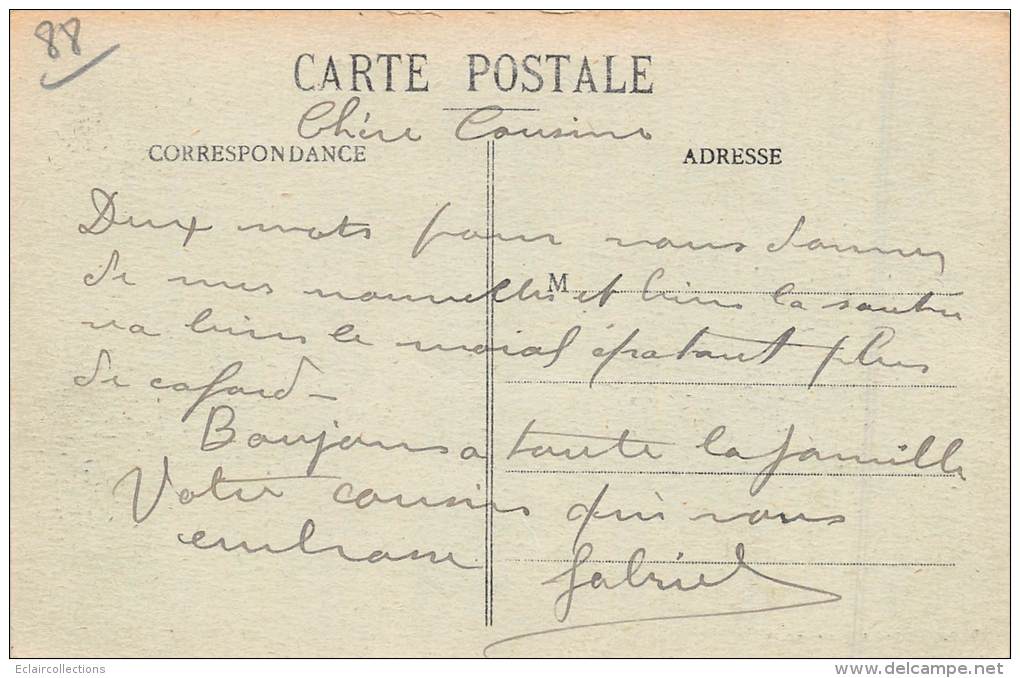 88
CARTE POSTALE
Chère Cousine
CORRESPONDANCE
ADRESSE
Deux mots pour vous donner
de mes nouvelles et bien la santée
M
va bien le moral épatant plus
de cafard –
Bonjours a toute la famille
Votre cousin qui vous
embrasse
Gabriel
Eclaircollections
www.delcampe.net